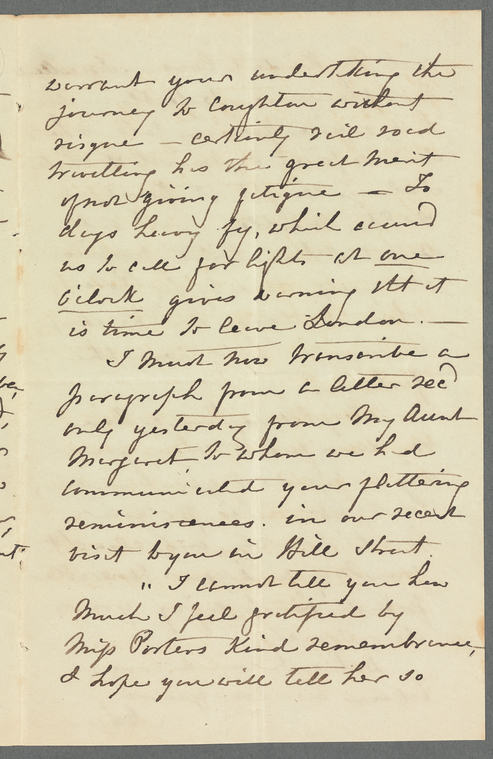 warrant your undertaking the
journey to Coughton without
risque — certainly rail road
travelling has the great merit
of not giving fatigue — To
days heavy fog, which caused
us to call for lights at one
o'clock gives warning tht it
is time to leave London. —
I must now transcribe a
paragraph from a letter recd
only yesterday from My Aunt
Margaret to whom we had
communicated your flattering
reminiscences. in our recent
visit to you in Hill Street.
" I cannot tell you how
Much I feel gratified by
Miss Porters Kind remembrance,
& hope you will tell her so